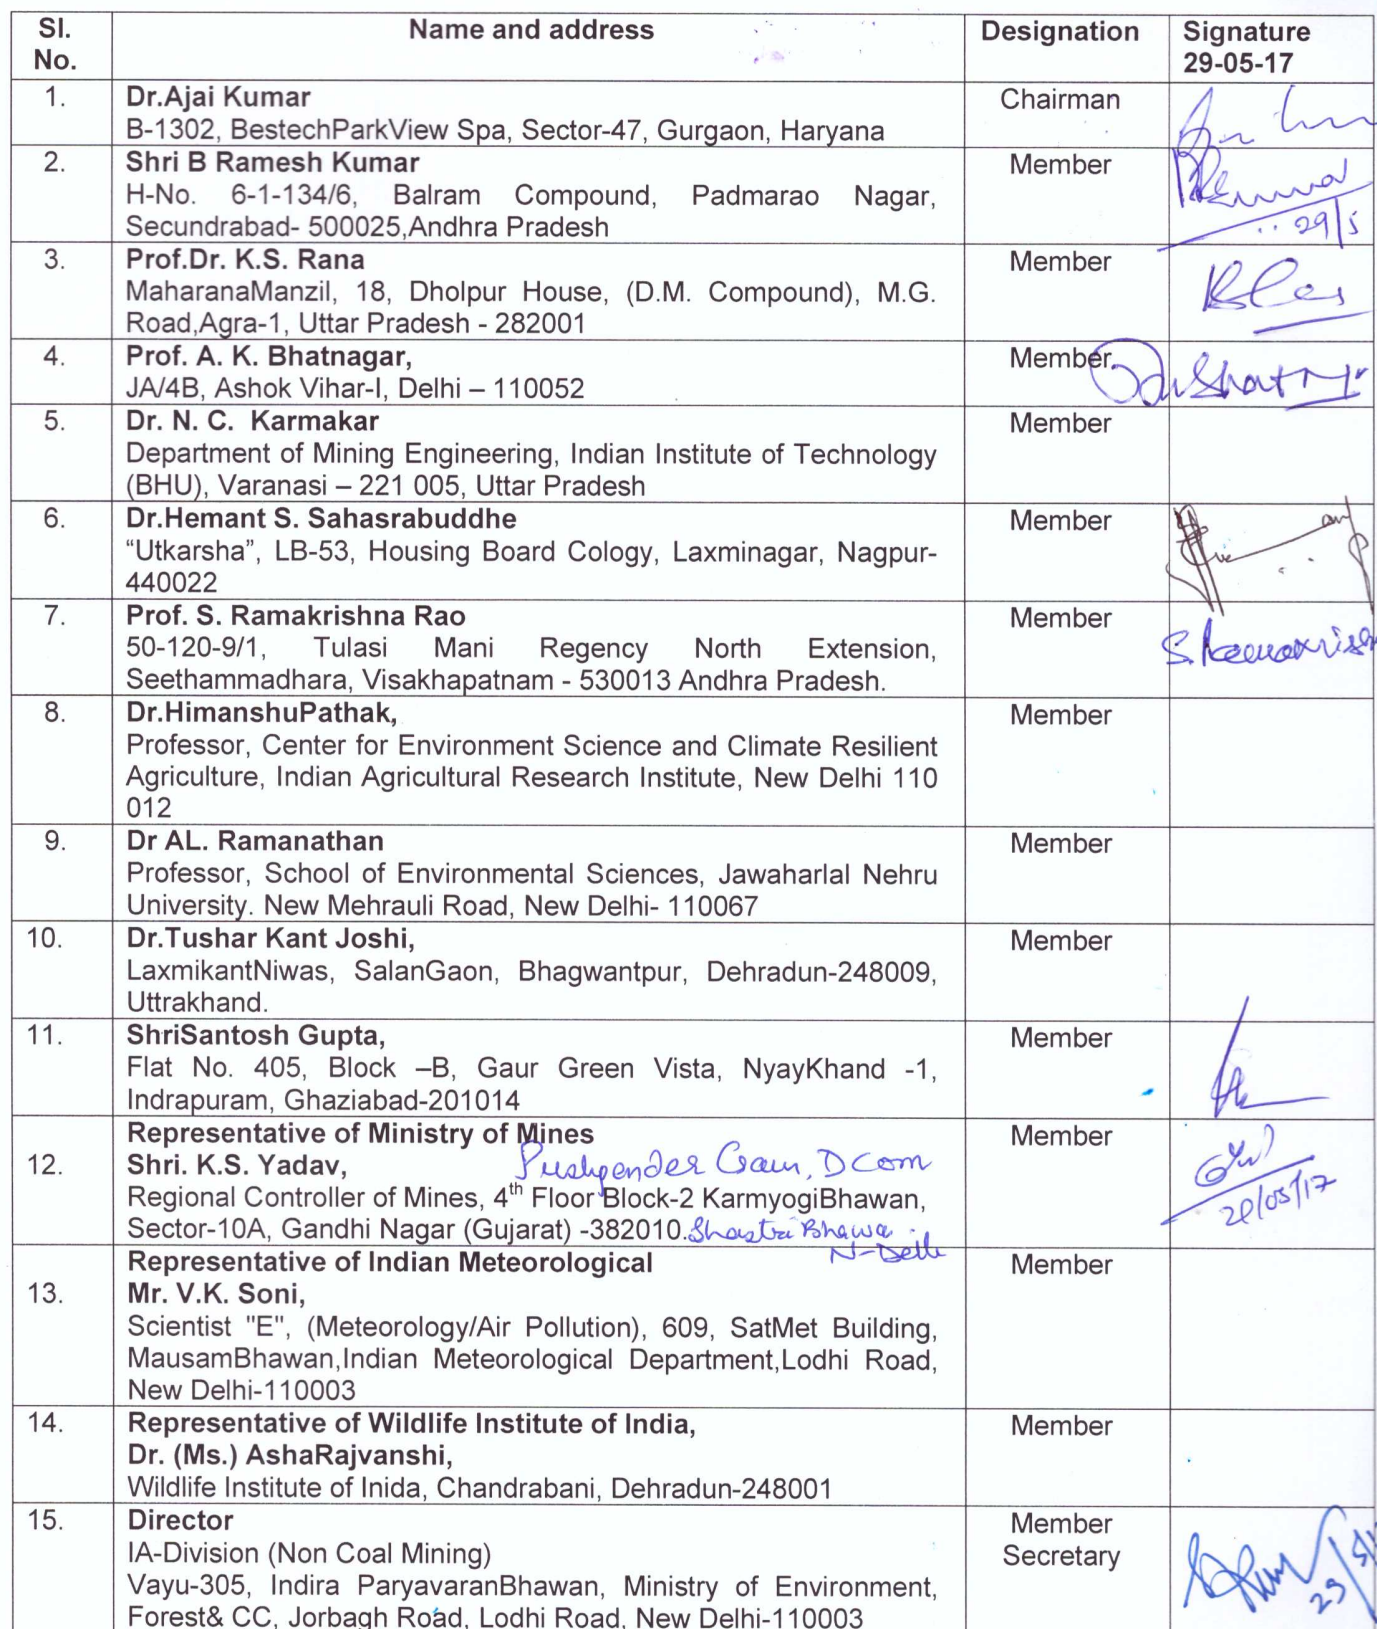 Sl. No. Name and address Designation Signature 29-05-17
1. Dr.Ajai Kumar Chairman
B-1302, BestechParkView Spa, Sector-47, Gurgaon, Haryana
2. Shri B Ramesh Kumar Member
H-No. 6-1-134/6, Balram Compound, Padmarao Nagar,
Secundrabad- 500025,Andhra Pradesh
29/5
3. Prof.Dr. K.S. Rana Member
MaharanaManzil, 18, Dholpur House, (D.M. Compound), M.G.
Road,Agra-1, Uttar Pradesh - 282001
4. Prof. A. K. Bhatnagar, Member
JA/4B, Ashok Vihar-I, Delhi – 110052
5. Dr. N. C. Karmakar Member
Department of Mining Engineering, Indian Institute of Technology
(BHU), Varanasi – 221 005, Uttar Pradesh
6. Dr.Hemant S. Sahasrabuddhe Member
“Utkarsha”, LB-53, Housing Board Cology, Laxminagar, Nagpur-
440022
7. Prof. S. Ramakrishna Rao Member
50-120-9/1, Tulasi Mani Regency North Extension,
Seethammadhara, Visakhapatnam - 530013 Andhra Pradesh.
8. Dr.HimanshuPathak, Member
Professor, Center for Environment Science and Climate Resilient
Agriculture, Indian Agricultural Research Institute, New Delhi 110
012
9. Dr AL. Ramanathan Member
Professor, School of Environmental Sciences, Jawaharlal Nehru
University. New Mehrauli Road, New Delhi- 110067
10. Dr.Tushar Kant Joshi, Member
LaxmikantNiwas, SalanGaon, Bhagwantpur, Dehradun-248009,
Uttrakhand.
11. ShriSantosh Gupta, Member
Flat No. 405, Block –B, Gaur Green Vista, NyayKhand -1,
Indrapuram, Ghaziabad-201014
Representative of Ministry of Mines Member
12. Shri. K.S. Yadav, Pushpender Gaur, DCOM
Regional Controller of Mines, 4th Floor Block-2 KarmyogiBhawan,
Sector-10A, Gandhi Nagar (Gujarat) -382010. Shastri Bhawan
N-Delhi
Representative of Indian Meteorological Member
13. Mr. V.K. Soni,
Scientist "E", (Meteorology/Air Pollution), 609, SatMet Building,
MausamBhawan,Indian Meteorological Department,Lodhi Road,
New Delhi-110003
14. Representative of Wildlife Institute of India, Member
Dr. (Ms.) AshaRajvanshi,
Wildlife Institute of Inida, Chandrabani, Dehradun-248001
15. Director Member Secretary
IA-Division (Non Coal Mining)
Vayu-305, Indira ParyavaranBhawan, Ministry of Environment,
Forest& CC, Jorbagh Road, Lodhi Road, New Delhi-110003